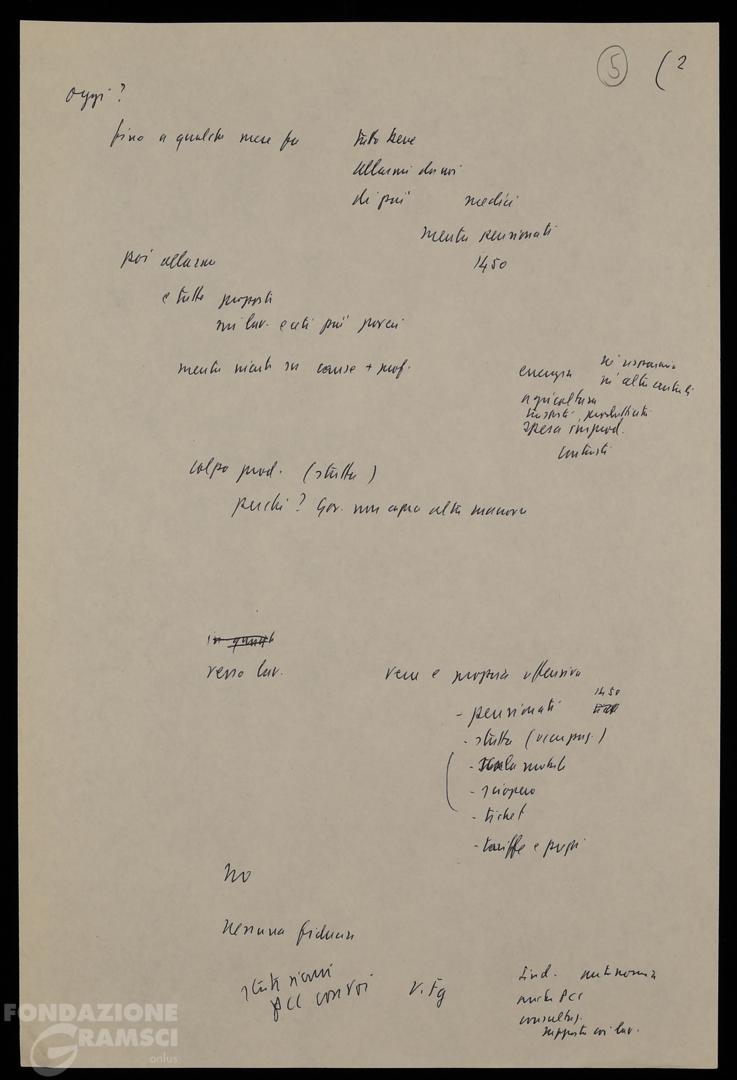 5 (2
Oggi?
fino a qualche mese fa tutto bene
allarmi da noi
di più medici
mentre pensionati
1450
poi allarme
e tutte proposte
su lav. e ceti più poveri
mentre niente su cause + prof.
energia né risparmio
né altre centrali
agricoltura
imposte, produttività
spesa improd.
contrasti
colpo prod. (stretta)
perché? Gov. non capace altra manovra
verso lav. vera e propria offensiva
- pensionati 1450
- stretta (occupaz.)
- scala mobile
- sciopero
- ticket
- tariffe e prezzi
No
Nessuna fiducia
state sicuri
PCC con voi V. Fg
Sind. autonomia
anche PCI
consultaz.
rapporto coi lav.
FONDAZIONE
GRAMSCI
onlus